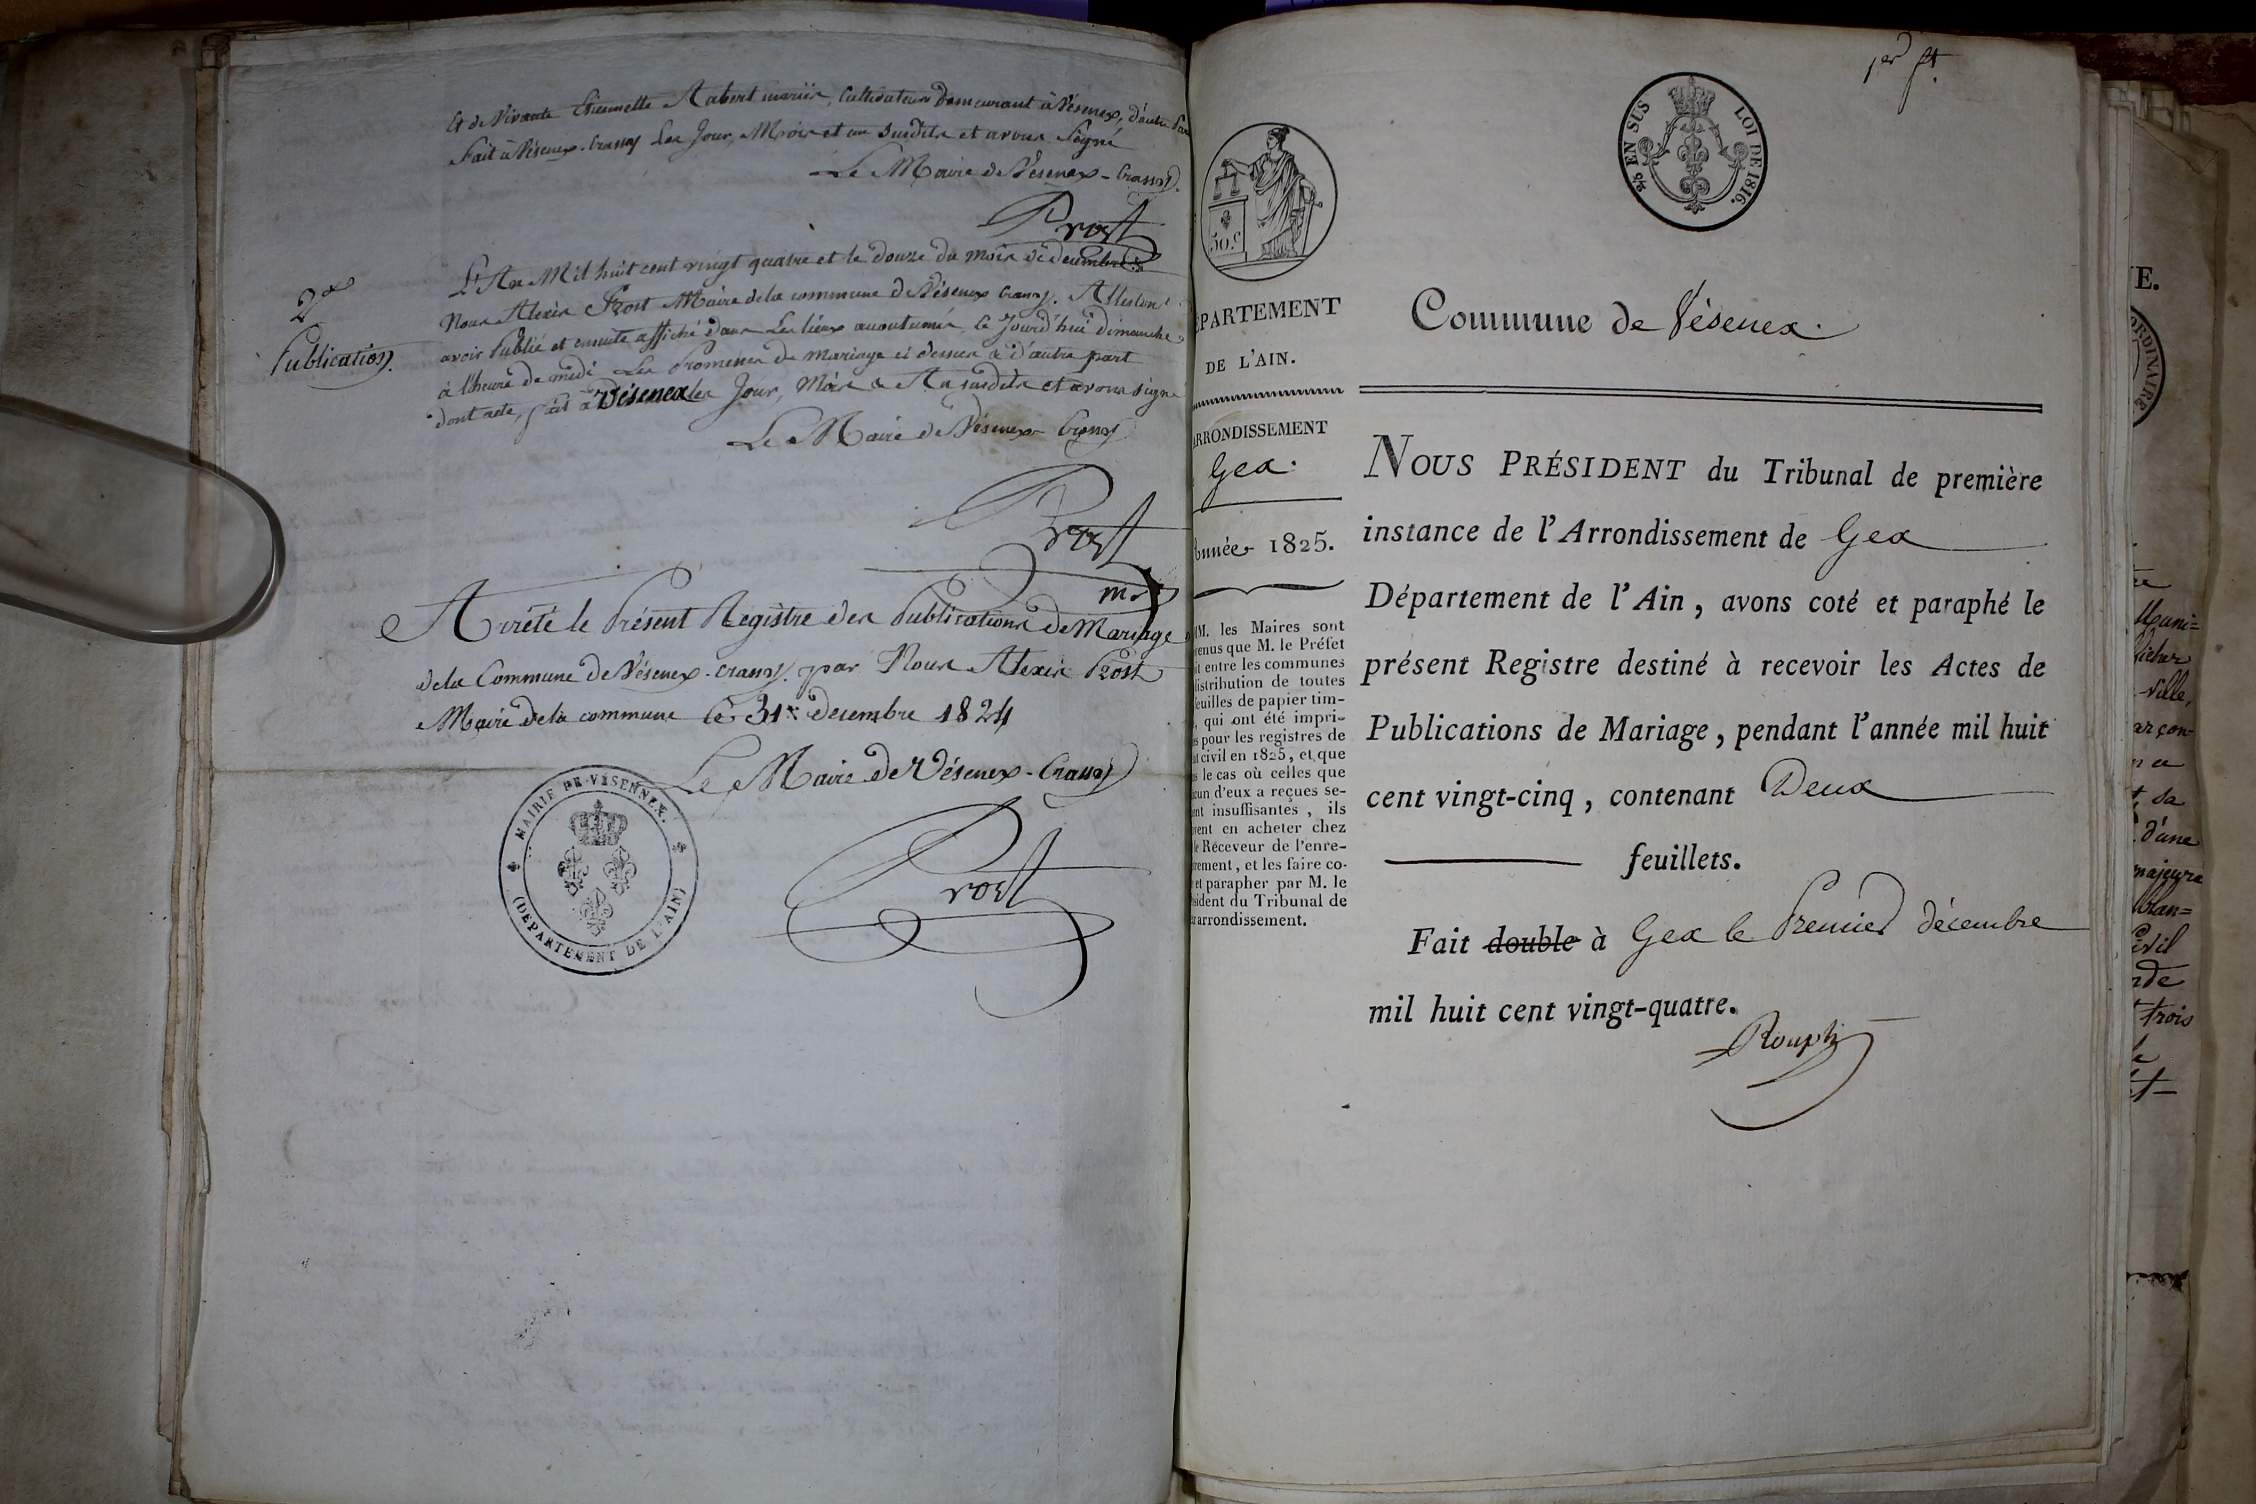 et de vivante Etiennette Rabert mariés, Cultivateurs Demeurant à Vésenex, d'autre Part
Fait à Vésenex-Crassy Les Jour, Mois et an Susdits et avons Signé
Le Maire de Vésenex-Crassy.
Prost
2de
Publication.
L'An Mil huit cent vingt quatre et le douze du mois de decembre
Nous Alexis Prost Maire de la commune de Vésenex Crassy. Attestons
avoir Publié et ensuite affiché dans Les lieux acoutumés, ce Jourd'hui dimanche
à l'heure de midi Les Promesses de mariage ci dessus & d'autre part
dont acte, fait à Vésenex les Jour, Mois & An susdits et avons signé
Le Maire de Vésenex Crassy
Prost
Arrêté le Présent Régistre des Publications de Mariage
de la Commune de Vésenex-crassy. par Nous Alexis Prost
Maire de la commune le 31x decembre 1824
Le Maire de Vésenex-Crassy
Prost
MAIRIE DE VESENNEX.
(DÉPARTEMENT DE L'AIN)
1er ft.
EN SUS LOI DE 1816.
50.c
Commune de Vésenex.
PARTEMENT
DE L'AIN.
ARRONDISSEMENT
Gex.
année 1825.
M. les Maires sont
venus que M. le Préfet
it entre les communes
distribution de toutes
feuilles de papier tim-
, qui ont été impri-
s pour les registres de
at civil en 1825, et que
s le cas où celles que
cun d'eux a reçues se-
ent insuffisantes, ils
vent en acheter chez
le Réceveur de l'enre-
rement, et les faire co-
et parapher par M. le
sident du Tribunal de
arrondissement.
NOUS PRÉSIDENT du Tribunal de première
instance de l'Arrondissement de Gex
Département de l'Ain, avons coté et paraphé le
présent Registre destiné à recevoir les Actes de
Publications de Mariage, pendant l'année mil huit
cent vingt-cinq, contenant Deux
feuillets.
Fait double à Gex le Premier décembre
mil huit cent vingt-quatre.
E.
ORDINAIRE
Muni=
-ville,
arçon
sa
d'une
majeure
trois